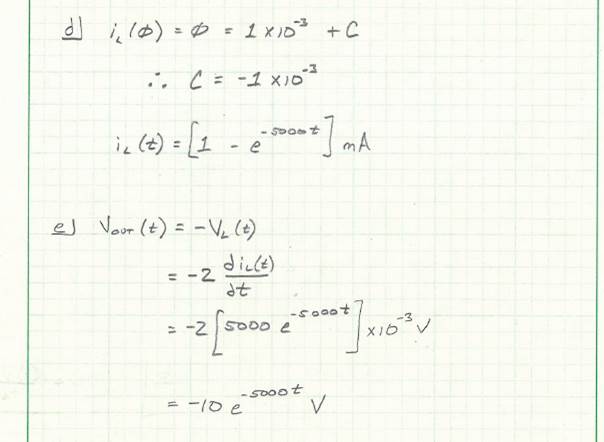 d) i_L(Ø) = Ø = 1 x10^-3 + C
∴ C = -1 x10^-3
i_L(t) = [1 - e^-5000t] mA
e) V_OUT(t) = -V_L(t)
= -2 di_L(t)/dt
= -2[5000 e^-5000t] x10^-3 V
= -10 e^-5000t V